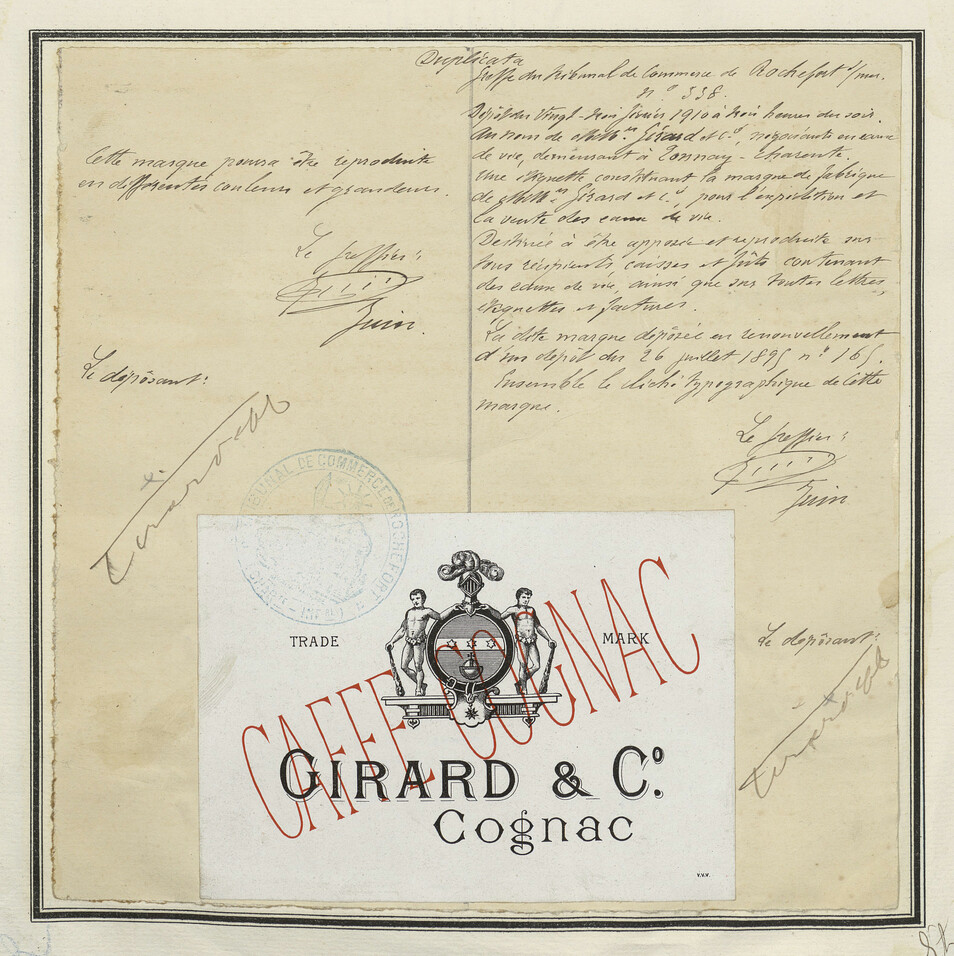 Duplicata
Greffe du Tribunal de Commerce de Rochefort s/mer.
n° 338.
Dépôt du Vingt-trois février 1910 à trois heures du soir.
Au nom de MM.rs Girard et Cie, négociants en eaux
de vie, demeurant à Tonnay-Charente.
Une étiquette constituant la marque de fabrique
de MM.rs Girard et Cie, pour l'expédition et
la vente des eaux de vie.
Destinée à être apposée et reproduite sur
tous récipients, caisses et fûts contenant
des eaux de vie, ainsi que sur toutes lettres,
étiquettes et factures.
La dite marque déposée en renouvellement
d'un dépôt du 26 juillet 1895 n° 165.
Ensemble le cliché typographique de cette
marque.
Le Greffier:
Juin
Le déposant:
Cette marque pourra être reproduite
en différentes couleurs et grandeurs.
Le Greffier:
Juin.
Le déposant:
TRIBUNAL DE COMMERCE DE ROCHEFORT
TRADE MARK
CAFFE COGNAC
GIRARD & Co.
Cognac
V.V.V.